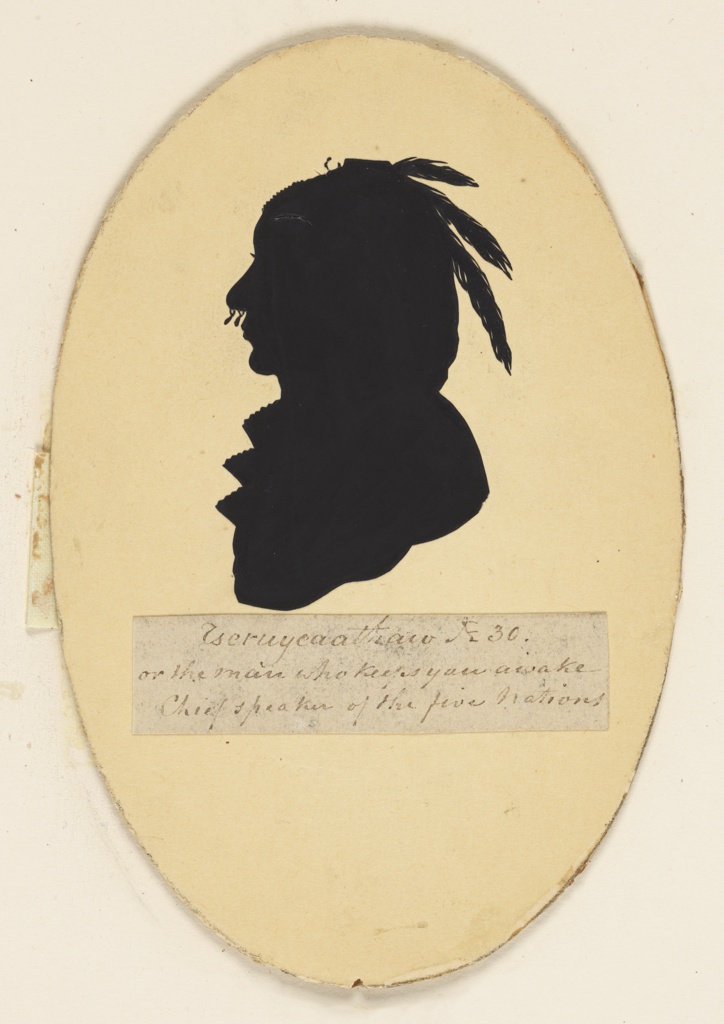 Tseruyeaathaw Æ 30.
or the man who keeps you awake
Chief speaker of the five Nations